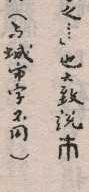 之…」也大致説市
（与城市字不同）